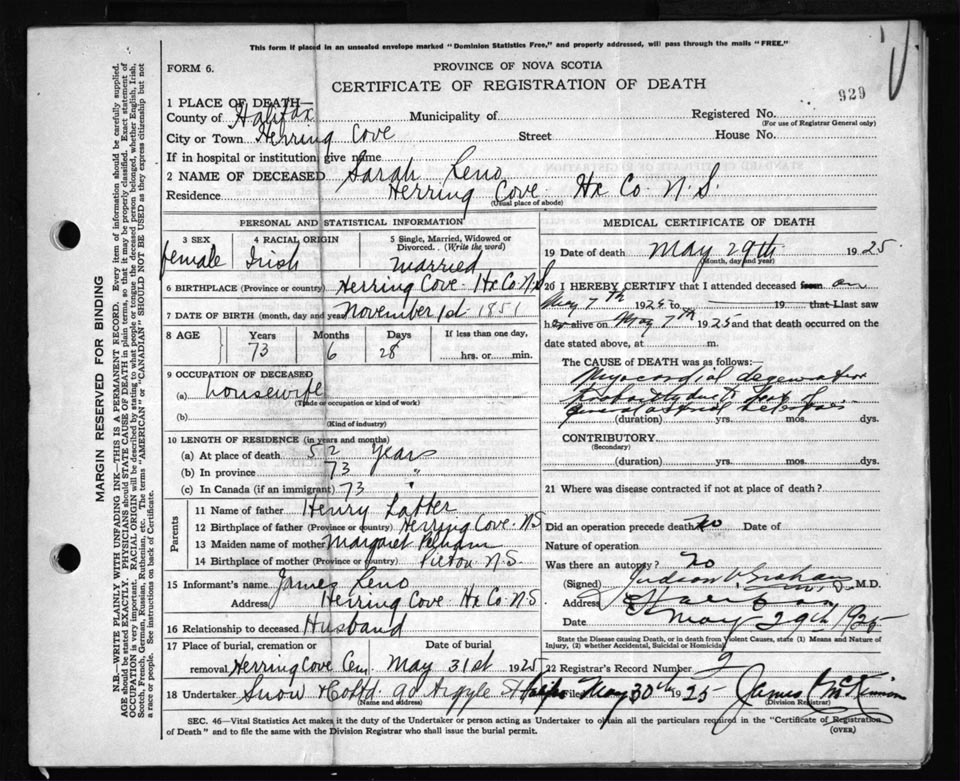 This form if placed in an unsealed envelope marked "Dominion Statistics Free," and properly addressed, will pass through the mails "FREE."
FORM 6.
PROVINCE OF NOVA SCOTIA
CERTIFICATE OF REGISTRATION OF DEATH
929
1 PLACE OF DEATH—
County of Halifax Municipality of Registered No.
(For use of Registrar General only)
City or Town Herring Cove Street House No.
If in hospital or institution, give name
2 NAME OF DECEASED Sarah Leno
Residence Herring Cove Hx Co. N.S.
(Usual place of abode)
PERSONAL AND STATISTICAL INFORMATION
3 SEX female
4 RACIAL ORIGIN Irish
5 Single, Married, Widowed or Divorced. (Write the word)
married
6 BIRTHPLACE (Province or country) Herring Cove Hx Co N.S
7 DATE OF BIRTH (month, day and year) November 1st 1851
8 AGE Years Months Days If less than one day,
73 6 28 hrs. or min.
9 OCCUPATION OF DECEASED
(a) housewife
(Trade or occupation or kind of work)
(b)
(Kind of industry)
10 LENGTH OF RESIDENCE (in years and months)
(a) At place of death 52 years
(b) In province 73 "
(c) In Canada (if an immigrant) 73 "
Parents
11 Name of father Henry Latter
12 Birthplace of father (Province or country) Herring Cove N.S
13 Maiden name of mother Margaret
14 Birthplace of mother (Province or country) Pictou N.S.
15 Informant's name James Leno
Address Herring Cove Hx Co. N.S.
16 Relationship to deceased Husband
17 Place of burial, cremation or Date of burial
removal Herring Cove Cem. May 31st 1925
18 Undertaker Snow & Co Ltd. 90 Argyle St Halifax
(Name and address)
MEDICAL CERTIFICATE OF DEATH
19 Date of death May 29th 1925
(Month, day and year)
20 I HEREBY CERTIFY that I attended deceased from on
May 7th 1925 to 19 that I last saw
her alive on May 7th 1925 and that death occurred on the
date stated above, at m.
The CAUSE of DEATH was as follows:
Myocardial degeneration
Probably due to
general arterial
(duration) yrs. mos. dys.
CONTRIBUTORY
(Secondary)
(duration) yrs. mos. dys.
21 Where was disease contracted if not at place of death?
Did an operation precede death? No Date of
Nature of operation
Was there an autopsy? No
(Signed) Judson V Graham M.D.
Address Halifax
Date May 29th 1925
State the Disease causing Death, or in death from Violent Causes, state (1) Means and Nature of Injury, (2) whether Accidental, Suicidal or Homicidal
22 Registrar's Record Number 2
Filed May 30th 1925 James McKinnon
(Division Registrar)
SEC. 46—Vital Statistics Act makes it the duty of the Undertaker or person acting as Undertaker to obtain all the particulars required in the "Certificate of Registration
of Death" and to file the same with the Division Registrar who shall issue the burial permit.
(OVER)
MARGIN RESERVED FOR BINDING
N.B.—WRITE PLAINLY WITH UNFADING INK—THIS IS A PERMANENT RECORD. Every item of information should be carefully supplied.
AGE should be stated EXACTLY. PHYSICIANS should STATE CAUSE OF DEATH in plain terms, so that it may be properly classified. Exact statement of
OCCUPATION is very important. RACIAL ORIGIN will be described by stating to what people or tongue the deceased person belonged, whether English, Irish,
Scotch, French, German, Russian, Ruthenian, etc. The terms "AMERICAN" or "CANADIAN" SHOULD NOT BE USED as they express citizenship but not
a race or people. See instructions on back of Certificate.